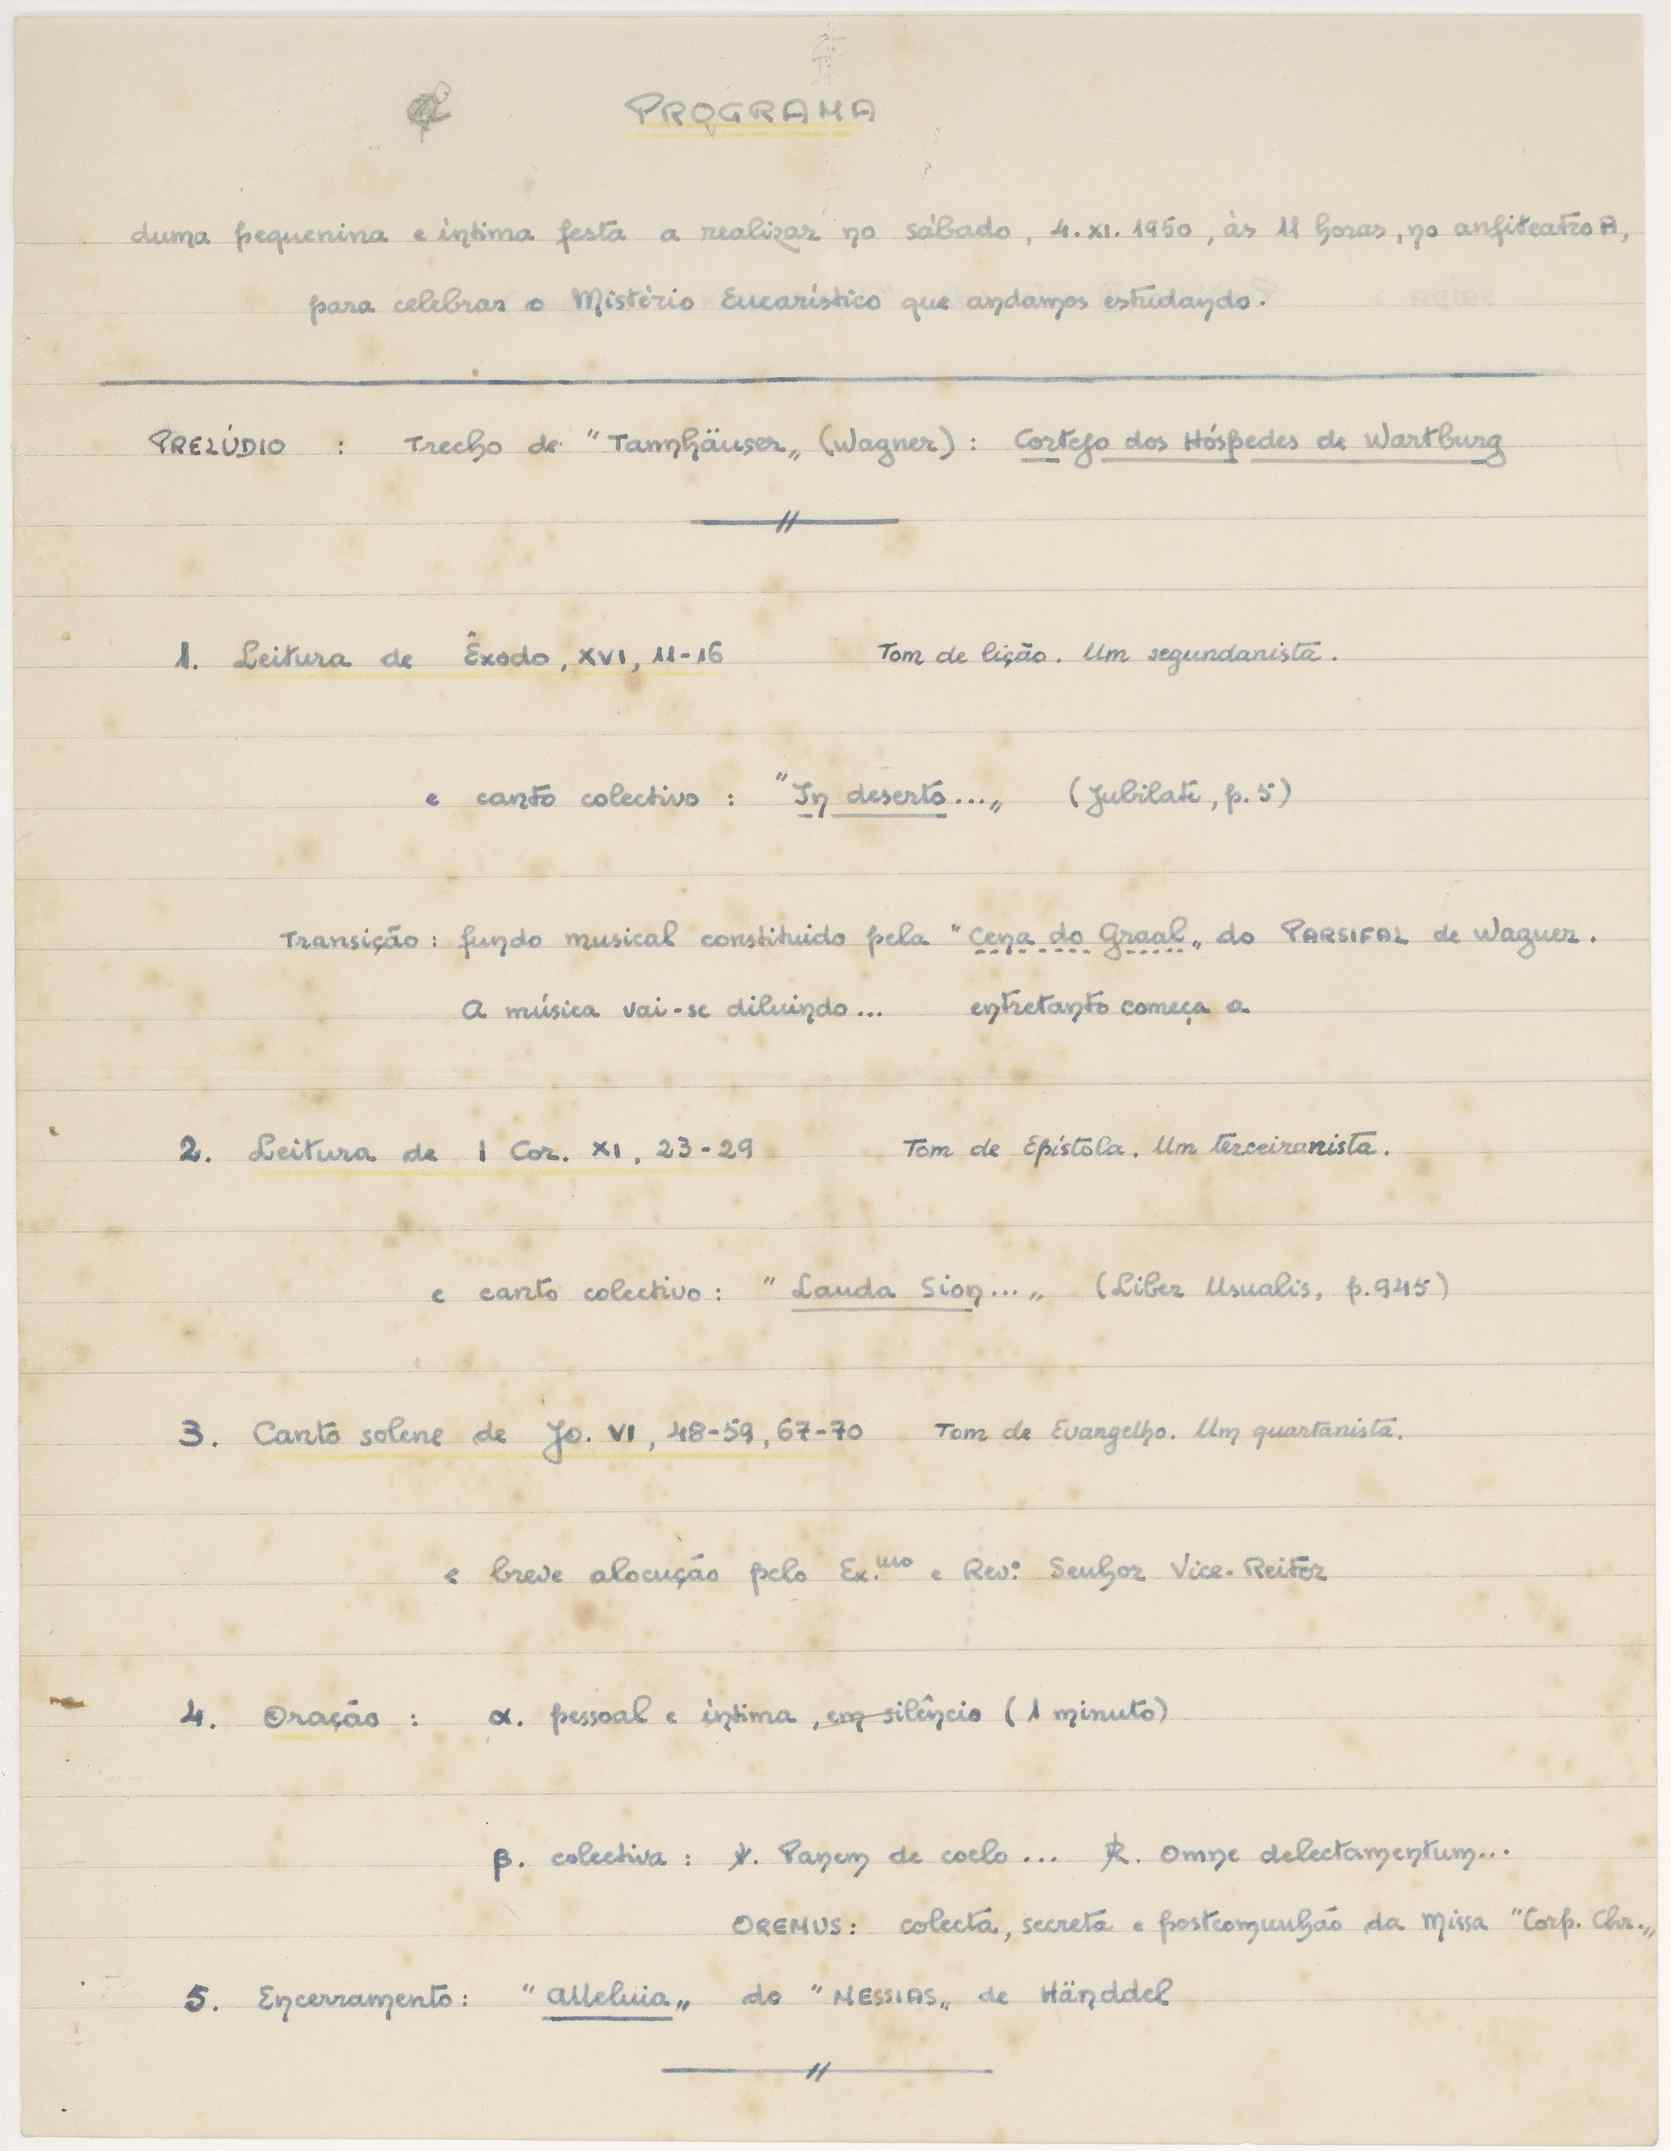 PROGRAMA
duma pequenina e íntima festa a realizar no sábado, 4.XI.1950, às 11 horas, no anfiteatro A,
para celebrar o Mistério Eucarístico que andamos estudando.
PRELÚDIO : Trecho de "Tannhäuser„ (Wagner): Cortejo dos Hóspedes de Wartburg
//
1. Leitura de Êxodo, XVI, 11-16 Tom de lição. Um segundanista.
e canto colectivo : "In deserto...„ (Jubilate, p. 5)
Transição: fundo musical constituido pela "Cena do Graal„ do PARSIFAL de Wagner.
A música vai-se diluindo... entretanto começa a
2. Leitura de I Cor. XI, 23-29 Tom de Epístola. Um terceiranista.
e canto colectivo: "Lauda Sion...„ (Liber Usualis, p. 945)
3. Canto solene de Jo. VI, 48-59, 67-70 Tom de Evangelho. Um quartanista.
e breve alocução pelo Ex.mo e Rev.º Senhor Vice-Reitor
4. Oração : α. pessoal e íntima, em silêncio (1 minuto)
β. colectiva : ℣. Panem de coelo... ℟. Omne delectamentum...
OREMUS: colecta, secreta e postcomunhão da Missa "Corp. Chr.„
5. Encerramento: "Alleluia„ do "MESSIAS„ de Händdel
//